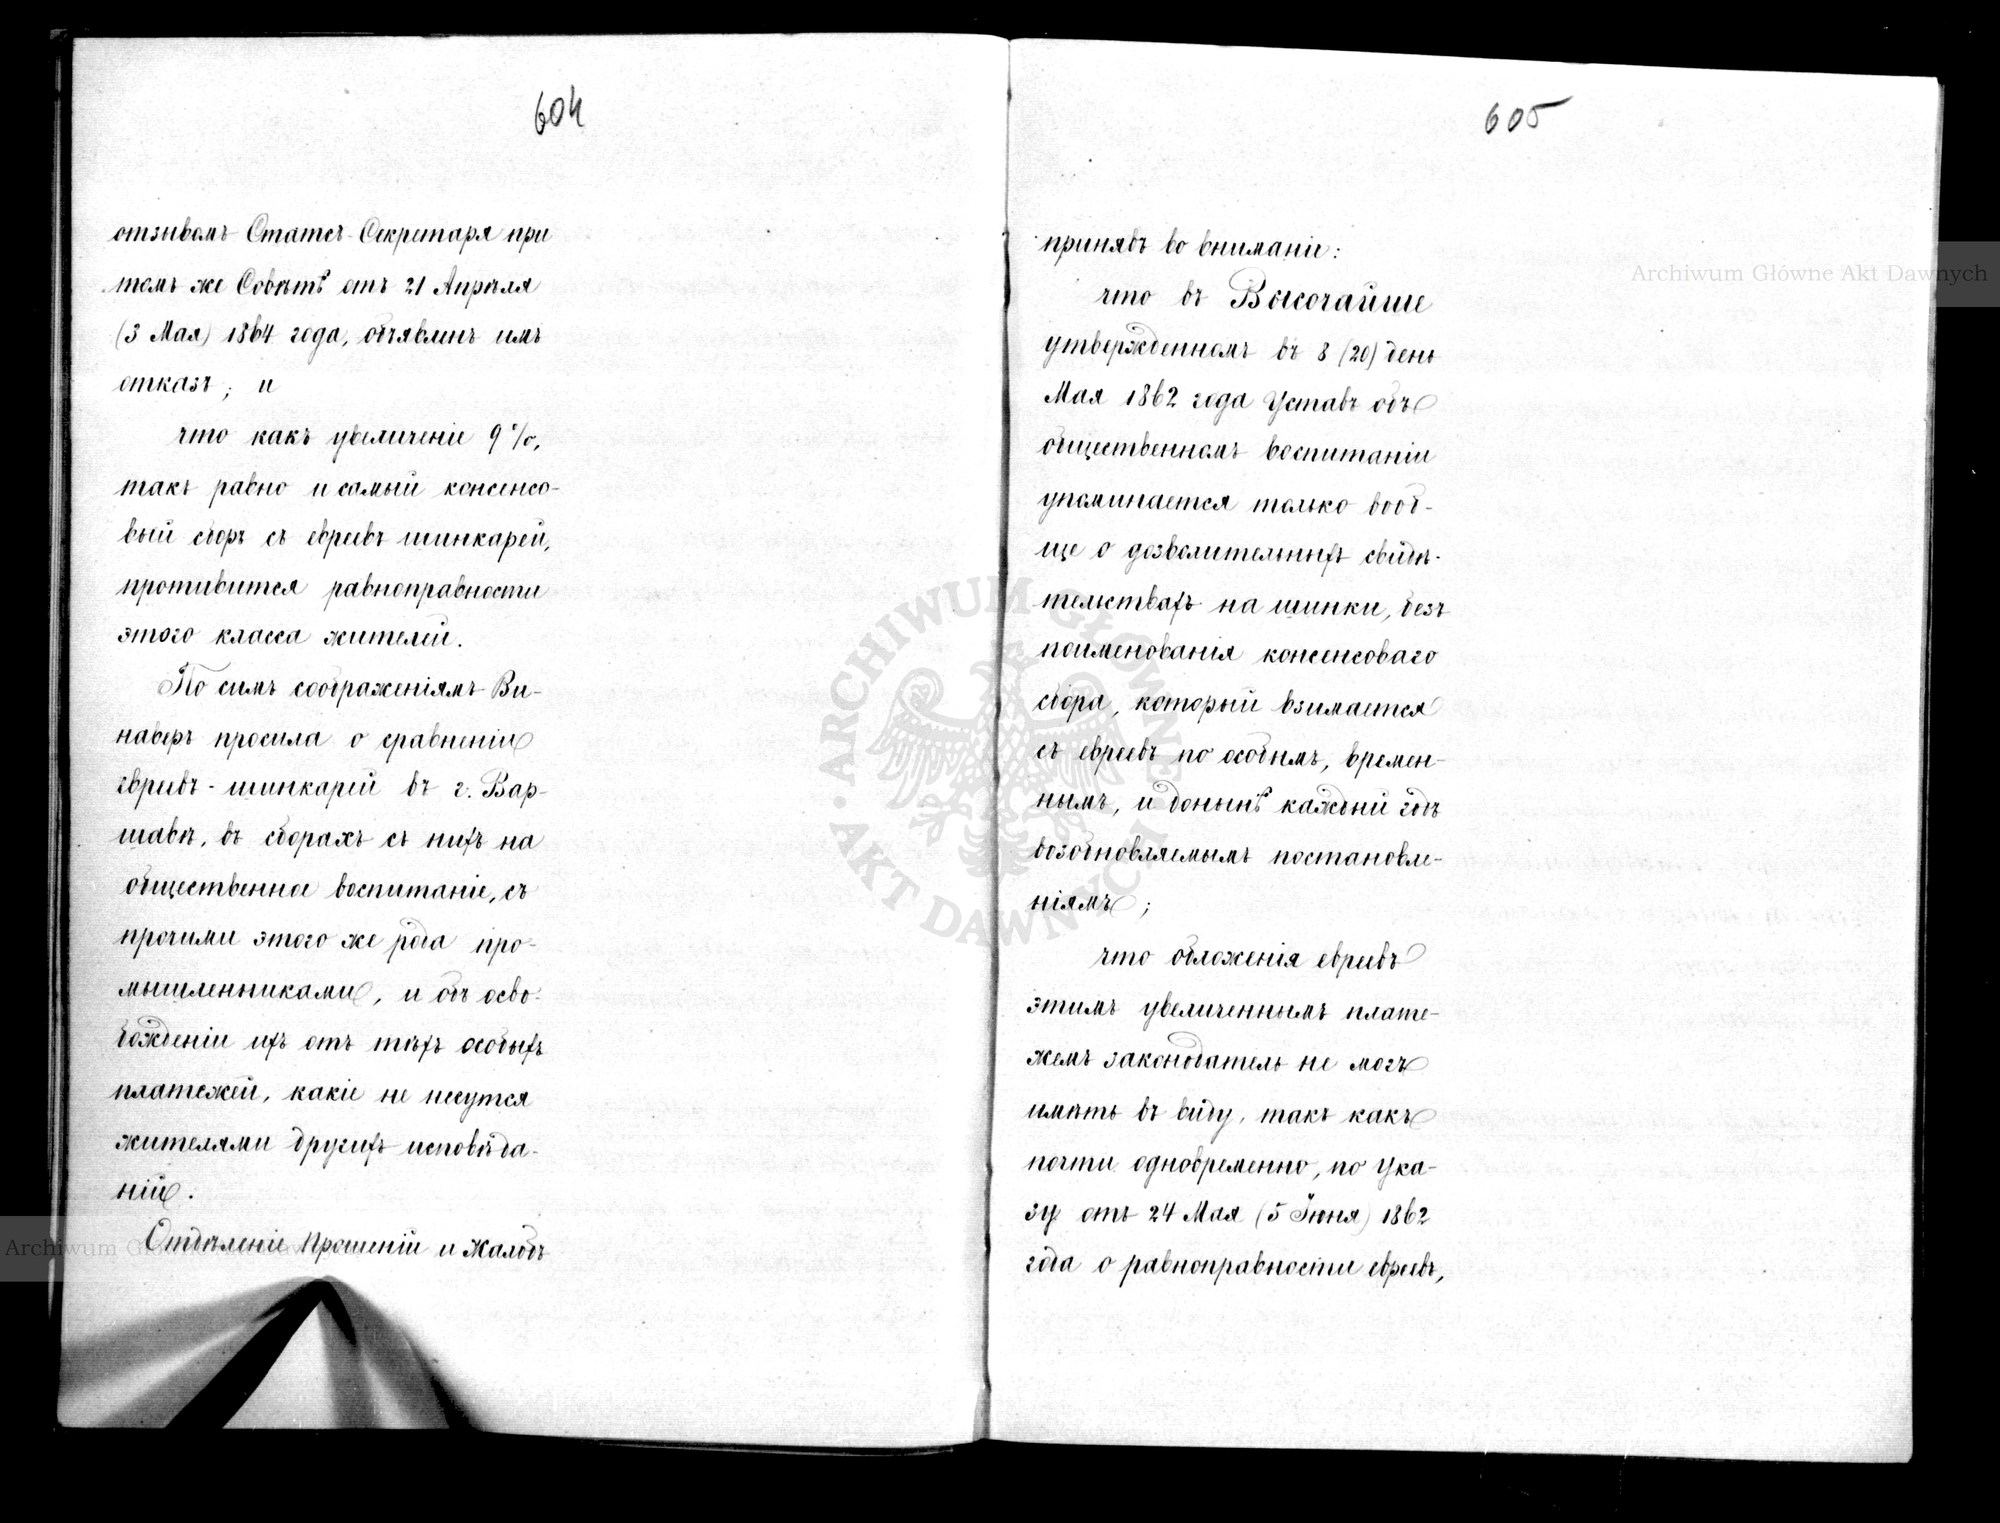 604
отзывомъ Статсъ-Секретаря при
томъ же Совѣтѣ отъ 21 Апрѣля
(3 Мая) 1864 года, объявленъ имъ
отказъ; и
что какъ увеличеніе 9%,
такъ равно и самый консенсо-
вый сборъ съ евреевъ шинкарей,
противится равноправности
этого класса жителей.
По симъ соображеніямъ Ви-
наверъ просила о сравненіи
евреевъ-шинкарей въ г. Вар-
шавѣ, въ сборахъ съ нихъ на
общественное воспитаніе, съ
прочими этого же рода про-
мышленниками, и объ осво-
божденіи ихъ отъ тѣхъ особыхъ
платежей, какіе не несутся
жителями другихъ исповѣда-
ній.
Отдѣленіе Прошеній и Жалобъ
605
принявъ во вниманіе:
что въ Высочайше
утвержденномъ въ 8 (20) день
Мая 1862 года Уставъ объ
общественномъ воспитаніи
упоминается только вооб-
ще о дозволительныхъ свидѣ-
тельствахъ на шинки, безъ
поименованія консенсоваго
сбора, который взимается
съ евреевъ по особымъ, времен-
нымъ, и донынѣ каждый годъ
возобновляемымъ постановле-
ніямъ;
что обложенія евреевъ
этимъ увеличеннымъ плате-
жемъ законодатель не могъ
имѣть въ виду, такъ какъ
почти одновременно, по Ука-
зу отъ 24 Мая (5 Іюня) 1862
года о равноправности евреевъ,
Archiwum Główne Akt Dawnych
ARCHIWUM GŁÓWNE
AKT DAWNYCH
Archiwum Główne Akt Dawnych